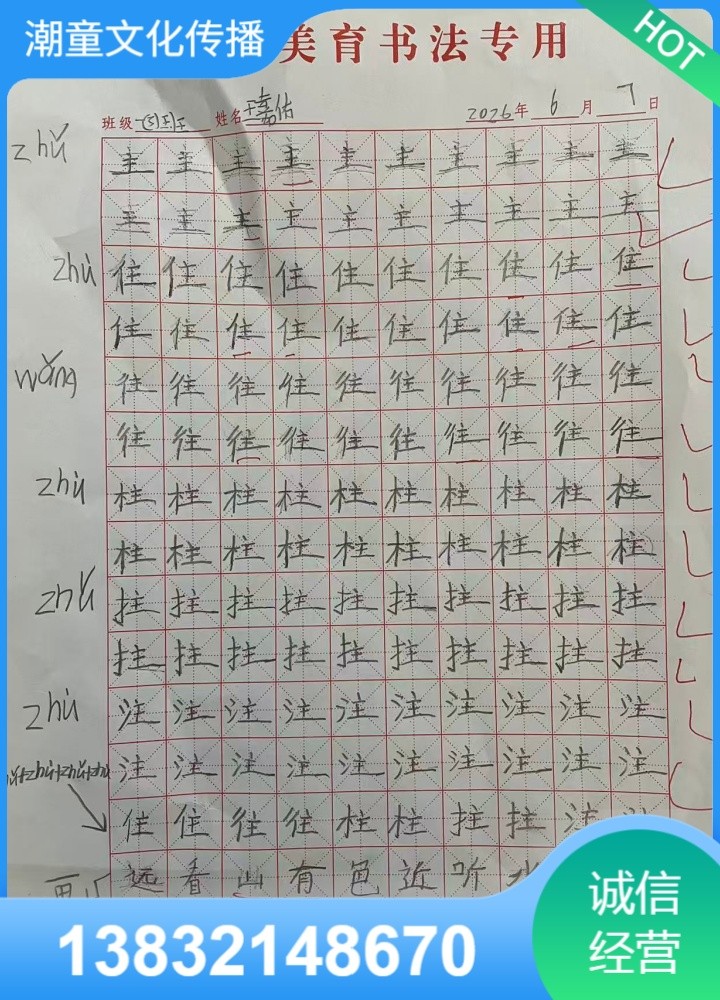 潮童文化传播
HOT
美育书法专用
班级 姓名 嘉佑 2026年6月7日
zhǔ 主 主 主 主 主 主 主 主 主 主
主 主 主 主 主 主 主 主 主 主
zhù 住 住 住 住 住 住 住 住 住 住
住 住 住 住 住 住 住 住 住 住
wǎng 往 往 往 往 往 往 往 往 往 往
往 往 往 往 往 往 往 往 往 往
zhù 柱 柱 柱 柱 柱 柱 柱 柱 柱 柱
柱 柱 柱 柱 柱 柱 柱 柱 柱 柱
zhǔ 拄 拄 拄 拄 拄 拄 拄 拄 拄 拄
拄 拄 拄 拄 拄 拄 拄 拄 拄 拄
zhù 注 注 注 注 注 注 注 注 注 注
注 注 注 注 注 注 注 注 注 注
住 住 往 往 柱 柱 拄 拄 注
远 看 山 有 色 近 听 水
诚信
经营
13832148670